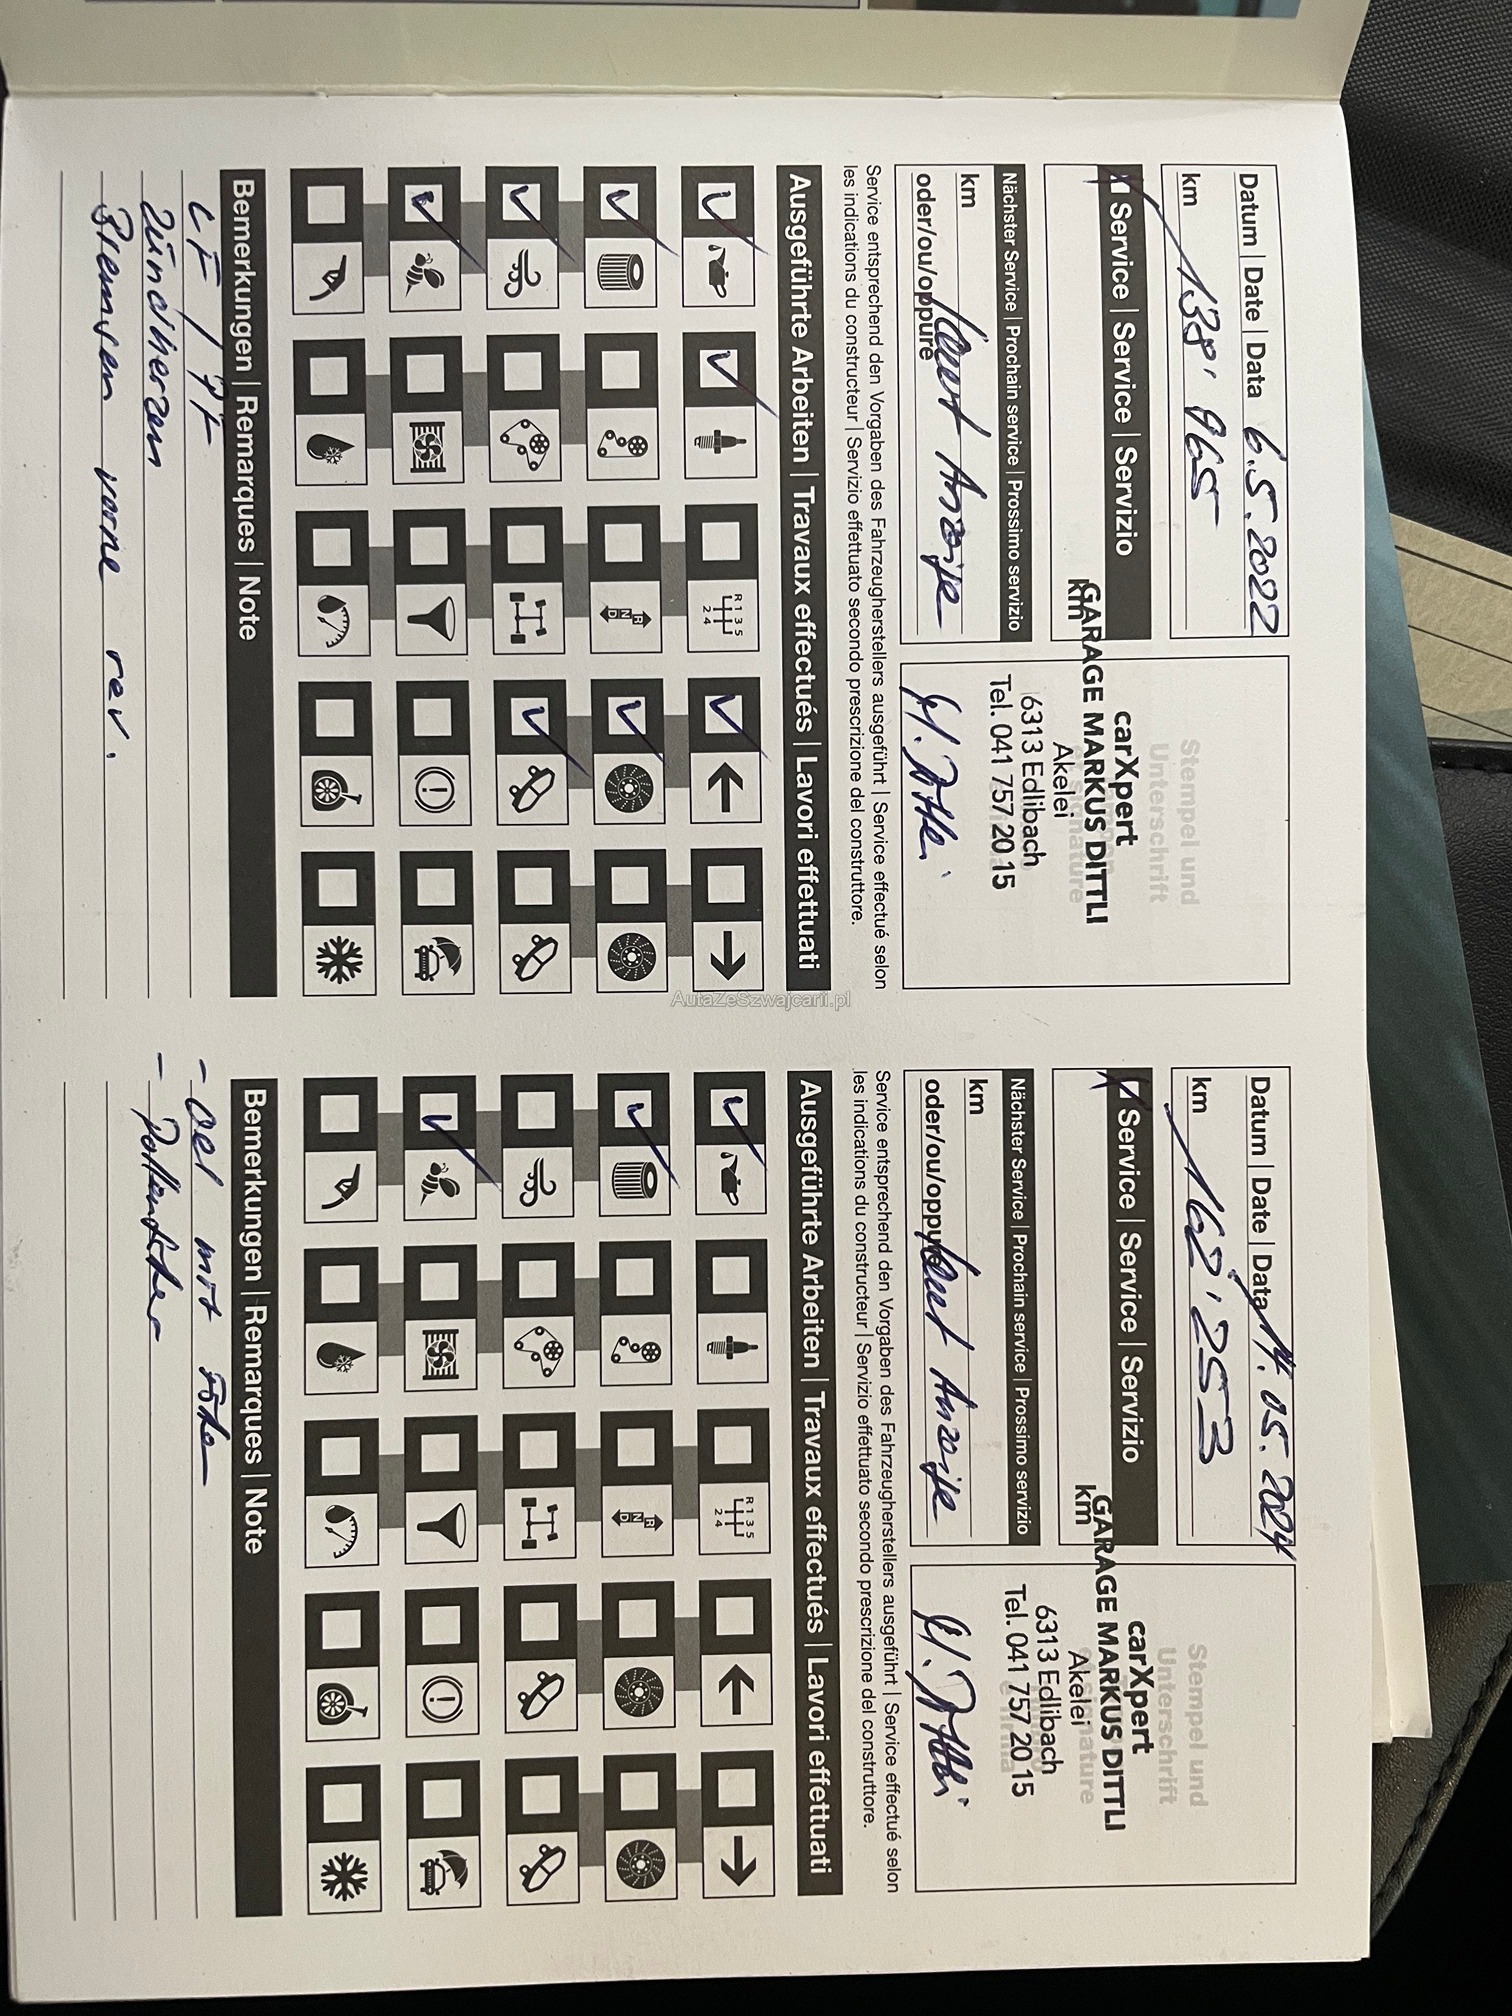 Datum | Date | Data 6.5.2022
km 138'965
Service | Service | Servizio
km
Nächster Service | Prochain service | Prossimo servizio
km
oder/ou/oppure laut Anzeige
Stempel und
Unterschrift
carXpert
GARAGE MARKUS DITTLI
Akelei
6313 Edlibach
Tel. 041 757 20 15
M. Dittli
Service entsprechend den Vorgaben des Fahrzeugherstellers ausgeführt | Service effectué selon
les indications du constructeur | Servizio effettuato secondo prescrizione del construttore.
Ausgeführte Arbeiten | Travaux effectués | Lavori effettuati
R 1 3 5
2 4
R
N
D
Bemerkungen | Remarques | Note
LF / PF
Zündkerzen
Bremsen vorne rev.
Datum | Date | Data 14.05.2024
km 162'253
Service | Service | Servizio
km
Nächster Service | Prochain service | Prossimo servizio
km
oder/ou/oppure laut Anzeige
Stempel und
Unterschrift
carXpert
GARAGE MARKUS DITTLI
Akelei
6313 Edlibach
Tel. 041 757 20 15
M. Dittli
Service entsprechend den Vorgaben des Fahrzeugherstellers ausgeführt | Service effectué selon
les indications du constructeur | Servizio effettuato secondo prescrizione del construttore.
Ausgeführte Arbeiten | Travaux effectués | Lavori effettuati
R 1 3 5
2 4
R
N
D
Bemerkungen | Remarques | Note
- Oel mit Filter
- Pollenfilter
AutaZeSzwajcarii.pl